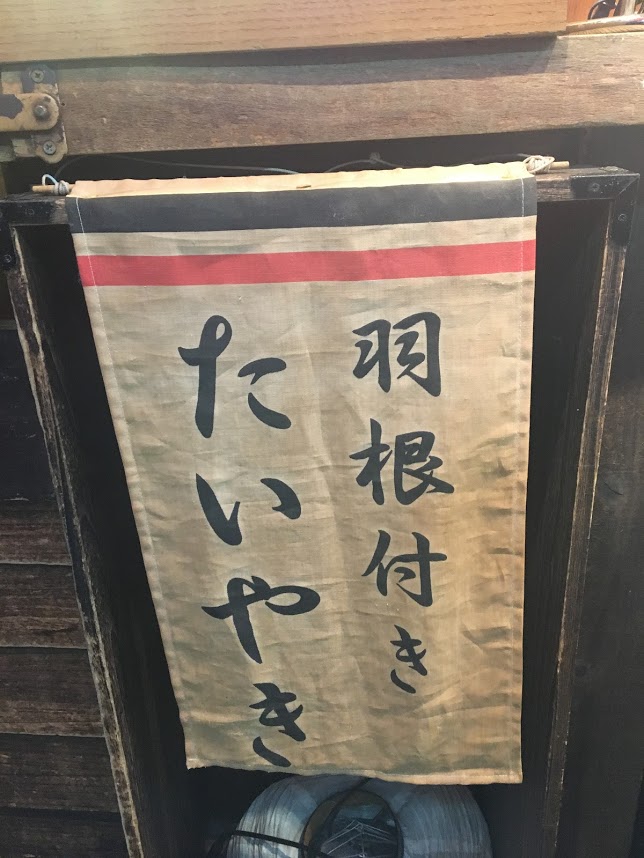 羽根付き
たいやき